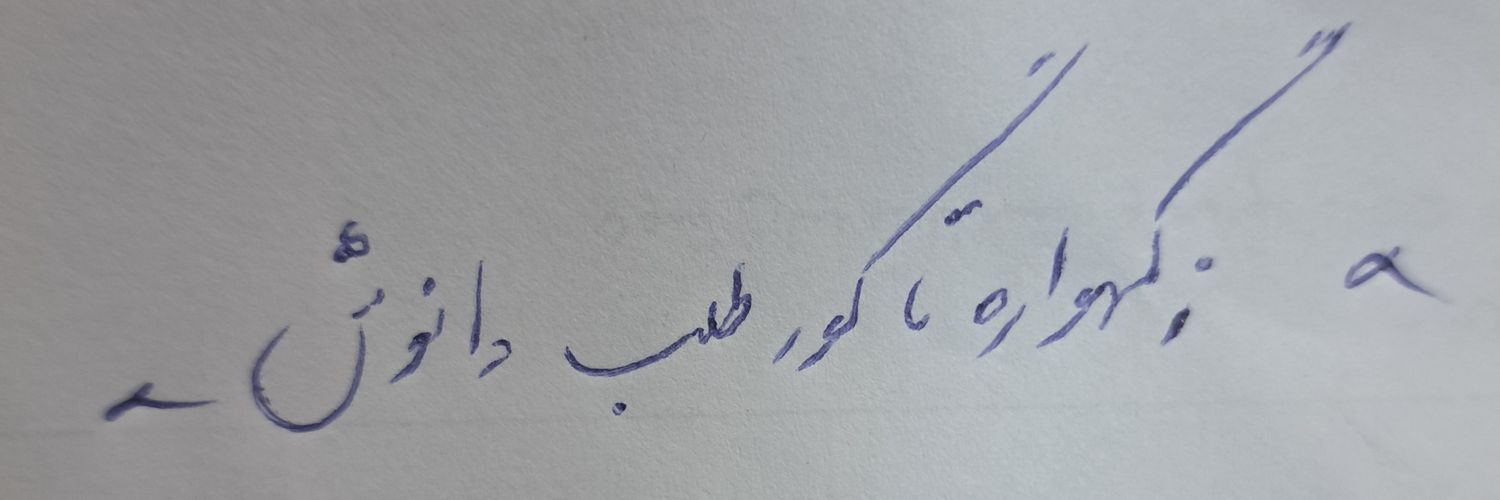 زگهواره تا گور طلب دانوش